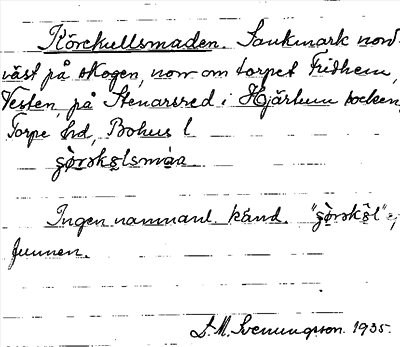 Körckullsmaden. Sankmark nord-
väst på skogen, norr om torpet Fridhem,
Vesten, på Stenarsred i Hjärtum socken,
Torpe hd, Bohus l
Ingen namnanl. känd.
funnen.
S. M. Svenungsson. 1935.